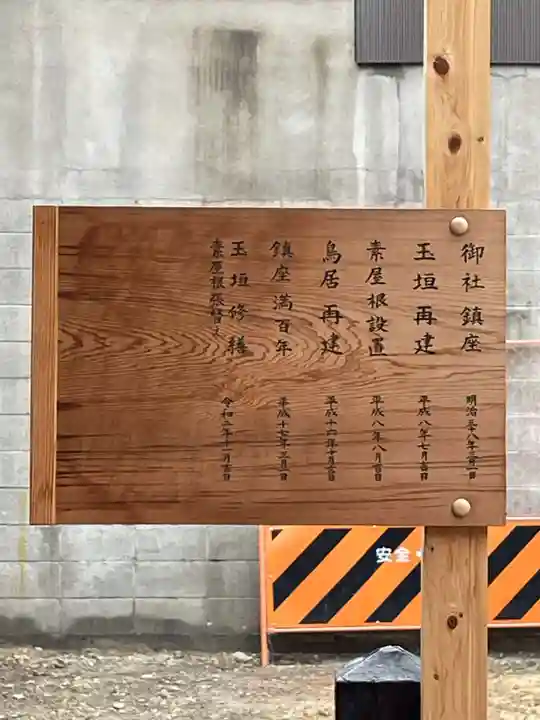 御社鎮座 明治三十八年三月一日
玉垣再建 平成八年七月吉日
素屋根設置 平成八年八月吉日
鳥居再建 平成十六年十月吉日
鎮座満百年 平成十七年三月一日
玉垣修繕
素屋根張替え 令和二年十一月吉日
安全・